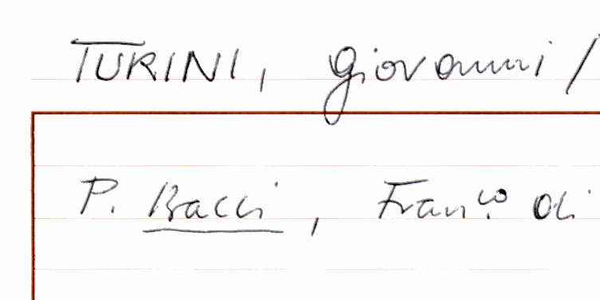 TURINI, Giovanni /
P. Bacci, Fran.co di